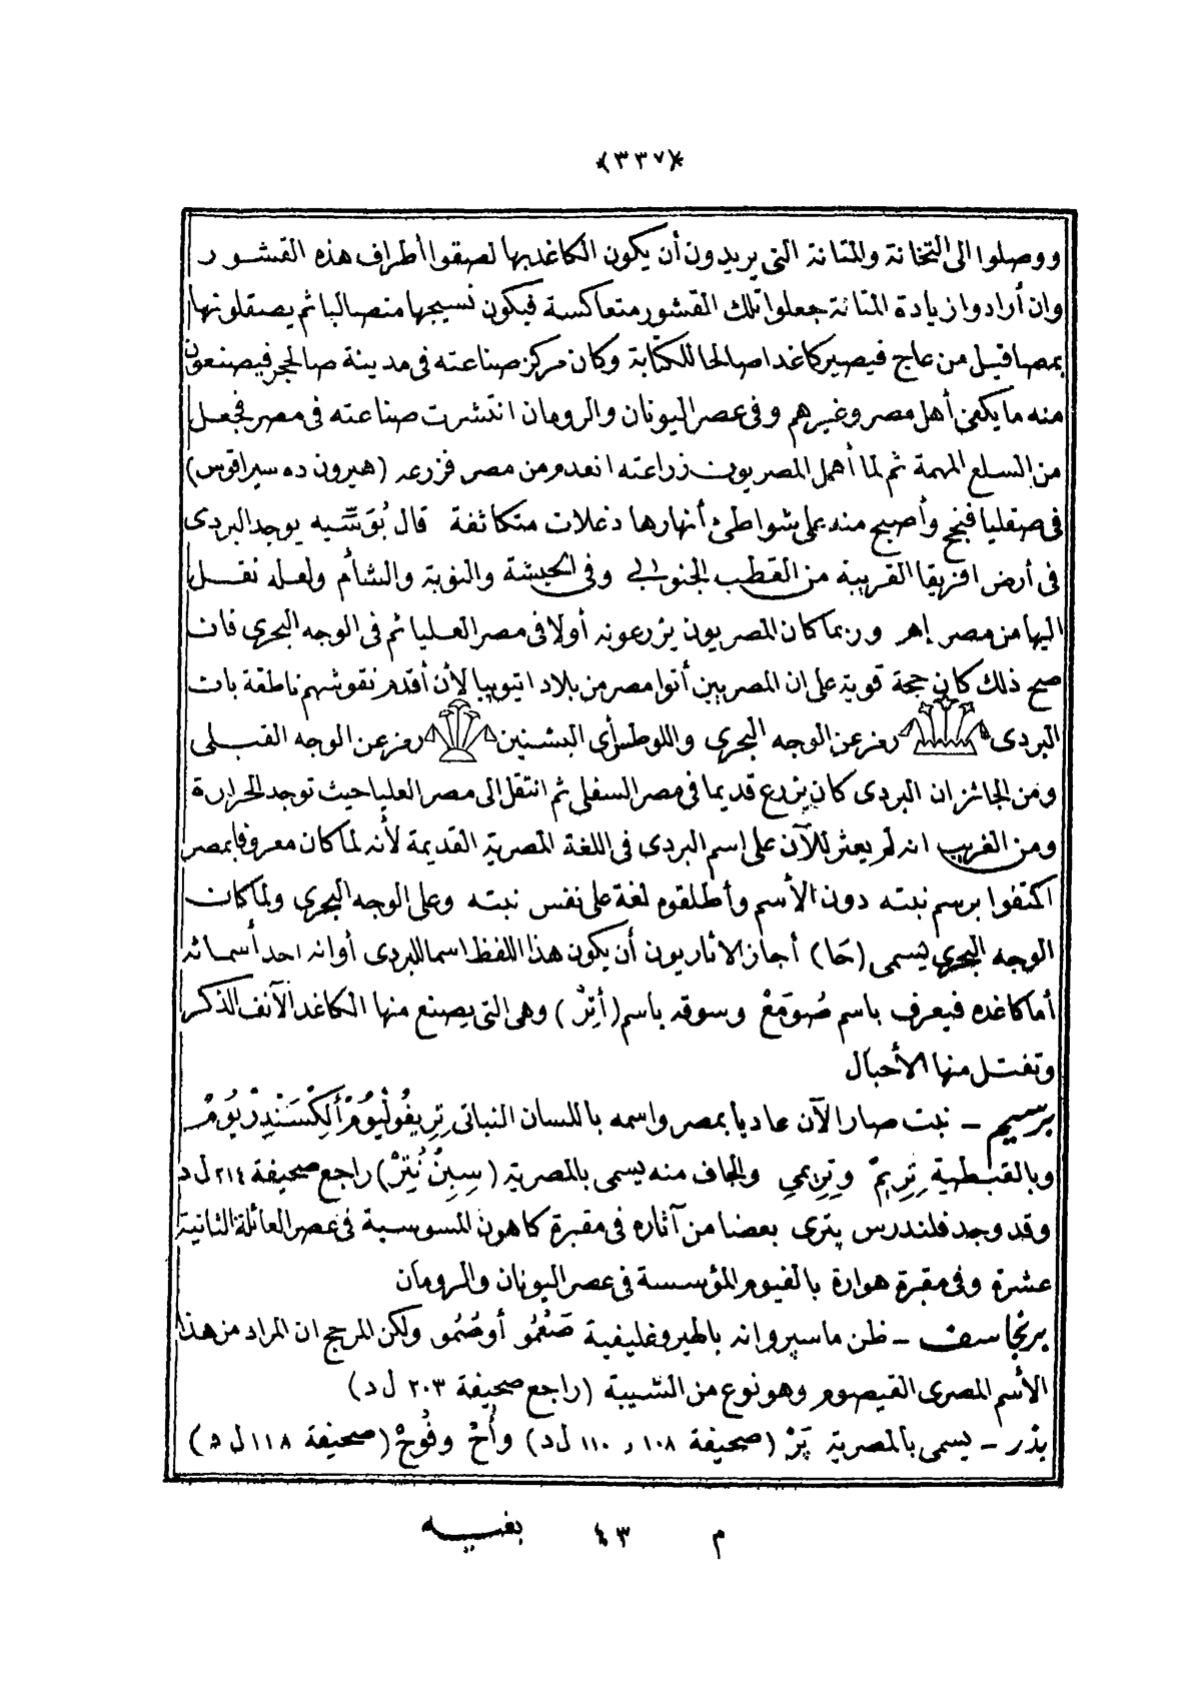 ﴿٣٣٧﴾
ووصلوا الى التخانة والمتانة التى يريدون أن يكون الكاغد بها لصقوا أطراف هذه القشور
وان أرادوا زيادة المتانة جعلوا تلك القشور متعاكسة فيكون نسيجها متصالبا ثم يصقلونها
بمصاقيل من عاج فيصير كاغدا صالحا للكتابة وكان مركز صناعته فى مدينة صالحجر فيصنعون
منه ما يكفى أهل مصر وغيرهم وفى عصر اليونان والرومان انتشرت صناعته فى مصر فجعل
من السلع المهمة ثم لما أهمل المصريون زراعته انعدم من مصر فزرعه (هيرون ده سيراقوس)
فى صقليا فنجح وأصبح منه على شواطئ أنهارها دغلات متكاثفة قال بُوَسّيه يوجد البردى
فى أرض افريقا القريبة من القطب الجنوبى وفى الحبشة والنوبة والشأم ولعله نقل
اليها من مصر إهر وربما كان المصريون يزرعونه أولا فى مصر العليا ثم فى الوجه البحرى فان
صح ذلك كان حجة قوية على ان المصريين أتوا مصر من بلاد اتيوبيا لأن أقدم نقوشهم ناطقة بان
البردى رمز عن الوجه البحرى واللوطس أى البشنين رمز عن الوجه القبلى
ومن الجائز ان البردى كان يزرع قديما فى مصر السفلى ثم انتقل الى مصر العليا حيث توجد الحرارة
ومن الغريب انه لم يعثر للآن على إسم البردى فى اللغة المصرية القديمة لأنه لما كان معروفا بمصر
اكتفوا برسم نبته دون الأسم وأطلقوه لغة على نفس نبته وعلى الوجه البحرى ولما كان
الوجه البحرى يسمى (حَا) أجاز الاثاريون أن يكون هذا اللفظ اسما للبردى أو انه احد أسمائه
أما كاغده فيعرف باسم صُوَمَعْ وسوقه باسم (أتِرْ) وهى التى يصنع منها الكاغد الآنف الذكر
وتفتل منها الأحبال
برسيم – نبت صار الآن عاديا بمصر واسمه باللسان النباتى تِرِيفُولْيُومْ أَلِكْسَنْدِرْيُومْ
وبالقبطية تِرِيمْ وتِرِيمِى والجاف منه يسمى بالمصرية (سِبِنْ نُيتَرْ) راجع صحيفة ٢١٤ ل د
وقد وجد فلندرس پترى بعضا من آثاره فى مقبرة كاهون المسوسية فى عصر العائلة الثانية
عشرة وفى مقبرة هوارة بالفيوم المؤسسة فى عصر اليونان والرومان
برنجاسف – ظن ماسپرو انه بالهيروغليفية صَعْمُو أو صُمُو ولكن المرجح ان المراد من هذا
الأسم المصرى القيصوم وهو نوع من الشيبة (راجع صحيفة ٢٠٣ ل د)
بذر – يسمى بالمصرية پَرْ (صحيفة ١٠٨ ر ١١٠ ل د) وأُخْ وفُوخْ (صحيفة ١١٨ ل د)
م ٤٣ بغيـه